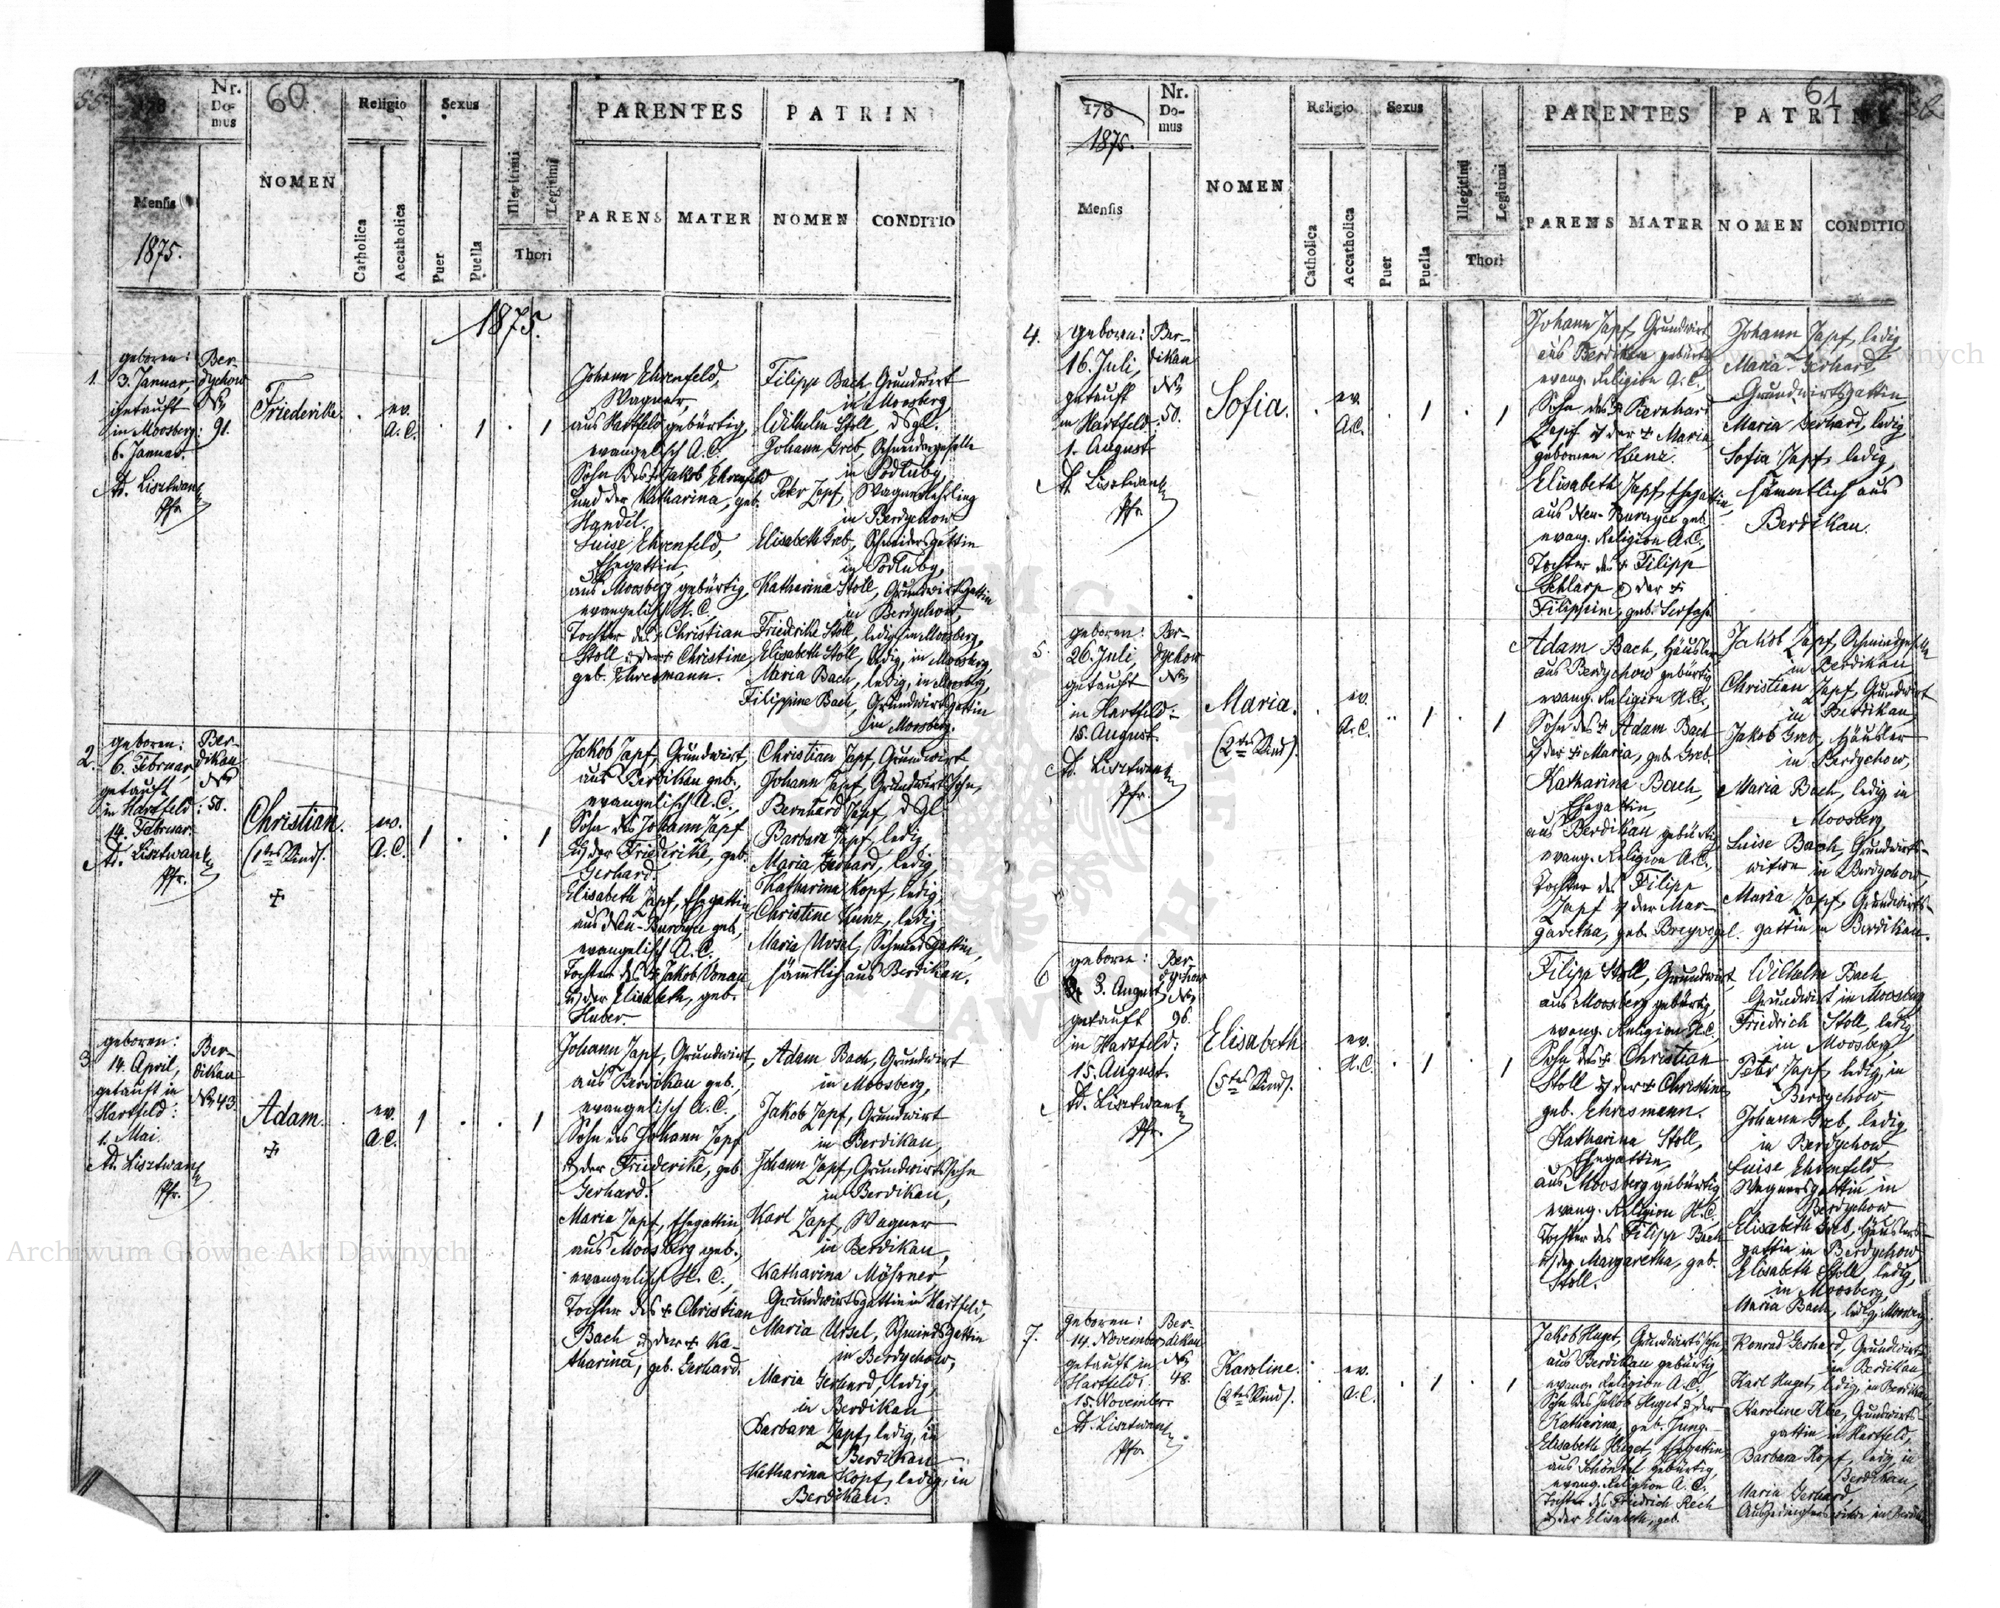 178
Nr. Domus
60
Religio
Sexus
PARENTES
PATRINI
Mensis
1875.
NOMEN
Catholica
Accatholica
Puer
Puella
Illegitimi
Legitimi
Thori
PARENS
MATER
NOMEN
CONDITIO
1875.
1.
geboren:
3. Januar,
getauft
in Moosberg:
6. Januar.
Ad. Lisztwan
Pfr.
Ber-
dychow
No
91.
Friederike.
ev.
A.C.
1
1
Johann Ehrenfeld,
Wagner,
aus Hartfeld gebürtig,
evangelisch A.C.,
Sohn des + Jakob Ehrenfeld
und der Katharina, geb.
Handel.
Luise Ehrenfeld,
Ehegattin,
aus Moosberg gebürtig,
evangelisch H.C.,
Tochter des + Christian
Stoll u. der + Christine,
geb. Ehresmann.
Filipp Bach, Grundwirt
in Moosberg
Wilhelm Stoll, dsgl.
Johann Greb, Schneidergeselle
in Podluby
Peter Zapf, Wagnerlehrling
in Berdychow
Elisabeth Greb, Schneidersgattin
in Podluby,
Katharina Stoll, Grundwirtsgattin
in Berdychow,
Friederike Stoll, ledig, in Moosberg,
Elisabeth Stoll, ledig, in Moosberg,
Maria Bach, ledig, in Moosberg,
Filippine Bach, Grundwirtsgattin
in Moosberg.
2.
geboren:
6. Februar,
getauft
in Hartfeld:
14. Februar.
Ad. Lisztwan
Pfr.
Ber-
dikau
No
50.
Christian.
(1tes Kind).
+
ev.
A.C.
1
1
Jakob Zapf, Grundwirt,
aus Berdikau geb.,
evangelisch A.C.,
Sohn des Johann Zapf
u. der Friederike, geb.
Gerhard.
Elisabeth Zapf, Ehegattin,
aus Neu-Burczyce geb.,
evangelisch A.C.
Tochter des + Jakob Vonau
u. der Elisabeth, geb.
Huber.
Christian Zapf, Grundwirt,
Johann Zapf, Grundwirtssohn,
Bernhard Zapf, dsgl
Barbara Zapf, ledig
Maria Gerhard, ledig,
Katharina Kopf, ledig,
Christine Kunz, ledig,
Maria Ursel, Schmiedsgattin,
sämmtlich aus Berdikau.
3.
geboren:
14. April,
getauft in
Hartfeld:
1. Mai.
Ad. Lisztwan
Pfr.
Ber-
dikau
No 43.
Adam.
+
ev.
A.C.
1
1
Johann Zapf, Grundwirt,
aus Berdikau geb.,
evangelisch A.C.,
Sohn des Johann Zapf
u. der Friederike, geb.
Gerhard.
Maria Zapf, Ehegattin
aus Moosberg geb.,
evangelisch H.C.,
Tochter des + Christian
Bach u. der + Ka-
tharina, geb. Gerhard.
Adam Bach, Grundwirt
in Moosberg,
Jakob Zapf, Grundwirt
in Berdikau,
Johann Zapf, Grundwirtssohn
in Berdikau,
Karl Zapf, Wagner
in Berdikau,
Katharina Möhrner,
Grundwirtsgattin in Hartfeld,
Maria Ursel, Schmiedsgattin
in Berdychow,
Maria Gerhard, ledig,
in Berdikau
Barbara Zapf, ledig, in
Berdikau
Katharina Kopf, ledig, in
Berdikau.
178
1875.
Nr. Domus
Religio
Sexus
PARENTES
61
PATRINI
Mensis
NOMEN
Catholica
Accatholica
Puer
Puella
Illegitimi
Legitimi
Thori
PARENS
MATER
NOMEN
CONDITIO
4.
geboren:
16. Juli,
getauft
in Hartfeld:
1. August
Ad. Lisztwan
Pfr.
Ber-
dikau
No
50.
Sofia.
ev.
A.C.
1
1
Johann Zapf, Grundwirt
aus Berdikau gebürtig
evang. Religion A.C.
Sohn des + Bernhard
Zapf u. der + Maria,
gebornen
Elisabeth Zapf, Ehegattin,
aus Neu-Burczyce geb.
evang. Religion A.C.,
Tochter des + Filipp
Schlarp u. der +
Filippine, geb.
Johann Zapf, ledig,
Maria Gerhard,
Grundwirtsgattin
Maria Gerhard, ledig
Sofia Zapf, ledig,
sämmtlich aus
Berdikau.
5.
geboren:
26. Juli,
getauft
in Hartfeld:
15. August.
Ad. Lisztwan
Pfr.
Ber-
dychow
No
Maria.
(2tes Kind).
ev.
A.C.
1
1
Adam Bach, Häusler
aus Berdychow gebürtig
evang. Religion H.C.,
Sohn des + Adam Bach
u. der + Maria, geb. Greb.
Katharina Bach,
Ehegattin,
aus Berdikau gebürtig
evang. Religion A.C.
Tochter des Filipp
Zapf u. der Mar-
garetha, geb. Breyvogel.
Jakob Zapf, Schmiedgeselle
in Berdikau
Christian Zapf, Grundwirt
in Berdikau,
Jakob Greb, Häusler
in Berdychow,
Maria Bach, ledig in
Moosberg,
Luise Bach, Grundwirts-
witwe in Berdychow,
Maria Zapf, Grundwirts-
gattin in Berdikau.
6
geboren:
3. August,
getauft
in Hartfeld:
15. August.
Ad. Lisztwan
Pfr.
Ber-
dychow
No
96.
Elisabeth
(5tes Kind).
ev.
H.C.
1
1
Filipp Stoll, Grundwirt,
aus Moosberg gebürtig,
evang. Religion H.C.,
Sohn des + Christian
Stoll u. der + Christine
geb. Ehresmann.
Katharina Stoll,
Ehegattin,
aus Moosberg gebürtig
evang. Religion H.C.,
Tochter des Filipp Bach
u. der Margaretha, geb.
Stoll.
Wilhelm Bach,
Grundwirt in Moosberg
Friedrich Stoll, ledig
in Moosberg
Peter Zapf, ledig, in
Berdychow
Johann Greb, ledig,
in Berdychow
Luise Ehrenfeld
Wagnersgattin in
Berdychow
Elisabeth Greb, Häuslers-
gattin in Berdychow
Elisabeth Stoll, ledig,
in Moosberg,
Maria Bach, ledig, Moosberg.
7.
geboren:
14. November,
getauft in
Hartfeld:
15. November.
Ad. Lisztwan
Pfr.
Ber-
dikau
No
48.
Karoline.
(2tes Kind).
ev.
A.C.
1
1
Jakob Huget, Grundwirtssohn,
aus Berdikau gebürtig
evang. Religion A.C.
Sohn des Jakob Huget u. der
Katharina, geb. Jung.
Elisabeth Huget, Ehegattin
aus Schönthal gebürtig,
evang. Religion A.C.
Tochter des Friedrich Rech
u. der Elisabeth, geb.
Konrad Gerhard, Grundwirt
in Berdikau,
Karl Huget, ledig, in Berdikau
Karoline Koe, Grundwirts-
gattin in Hartfeld,
Barbara Kopf, ledig in
Berdikau,
Maria Gerhard,
Ausgedingerswitwe in Berdikau
Archiwum Główne Akt Dawnych
Archiwum Główne Akt Dawnych